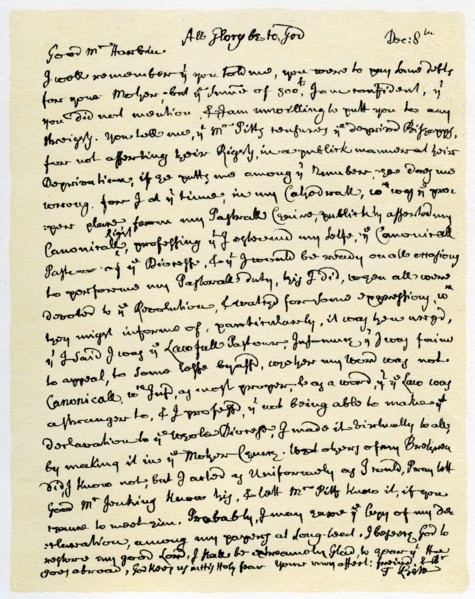 All Glory be to God
Dec: 8th
Good Mr Harbin.
I well remember yt you told me, you were to pay some debts
for your Mother, but ye summe of 500l, I am confident, yt
you did not mention, & I am unwilling to putt you to any
streights. You tell me, yt Mr Pitts censures ye deprivd Bishopps,
for not asserting their Rights, in a publick manner at their
Deprivation, if He putts me among ye Number, He does me
wrong. for I at yt time, in my Cathedrall, wch was ye pro-
per place, from my Pastorall Chaire, publickly asserted my
Canonicall Right, professing yt I esteemed my selfe, ye Canonicall
Pastour of ye Diocese, & yt I would be ready on all occasions
to performe my Pastorall duty, this I did, when all were
devoted to ye Revolution, & watchd for some expression, wch
they might informe of, particularly, it was then urged,
yt I said I was ye Lawfull Pastour, Informers yt I was faine
to appeal, to some lesse byassd, whether my word was not
Canonicall, wch I usd, as most proper, & as a word, yt ye law was
a stranger to, & I professd, yt not being able to make yt
declaration to ye whole Diocese, I made it virtually to all,
by making it in ye Mother Church. What others of my Brethren
did, I know not, but I acted as Uniformely as I could, Pray lett
Good Mr Jenkins know this, & lett Mr Pitts know it, if you
chance to meet him. Probably, I may have ye Copy of my de-
claration, among my papers at Long-leat, I beseech God to
restore my good Lord, I shall be extreamely glad to hear yt He
goes abroad, God keep us in His Holy fear Your very affect: freind, & Br